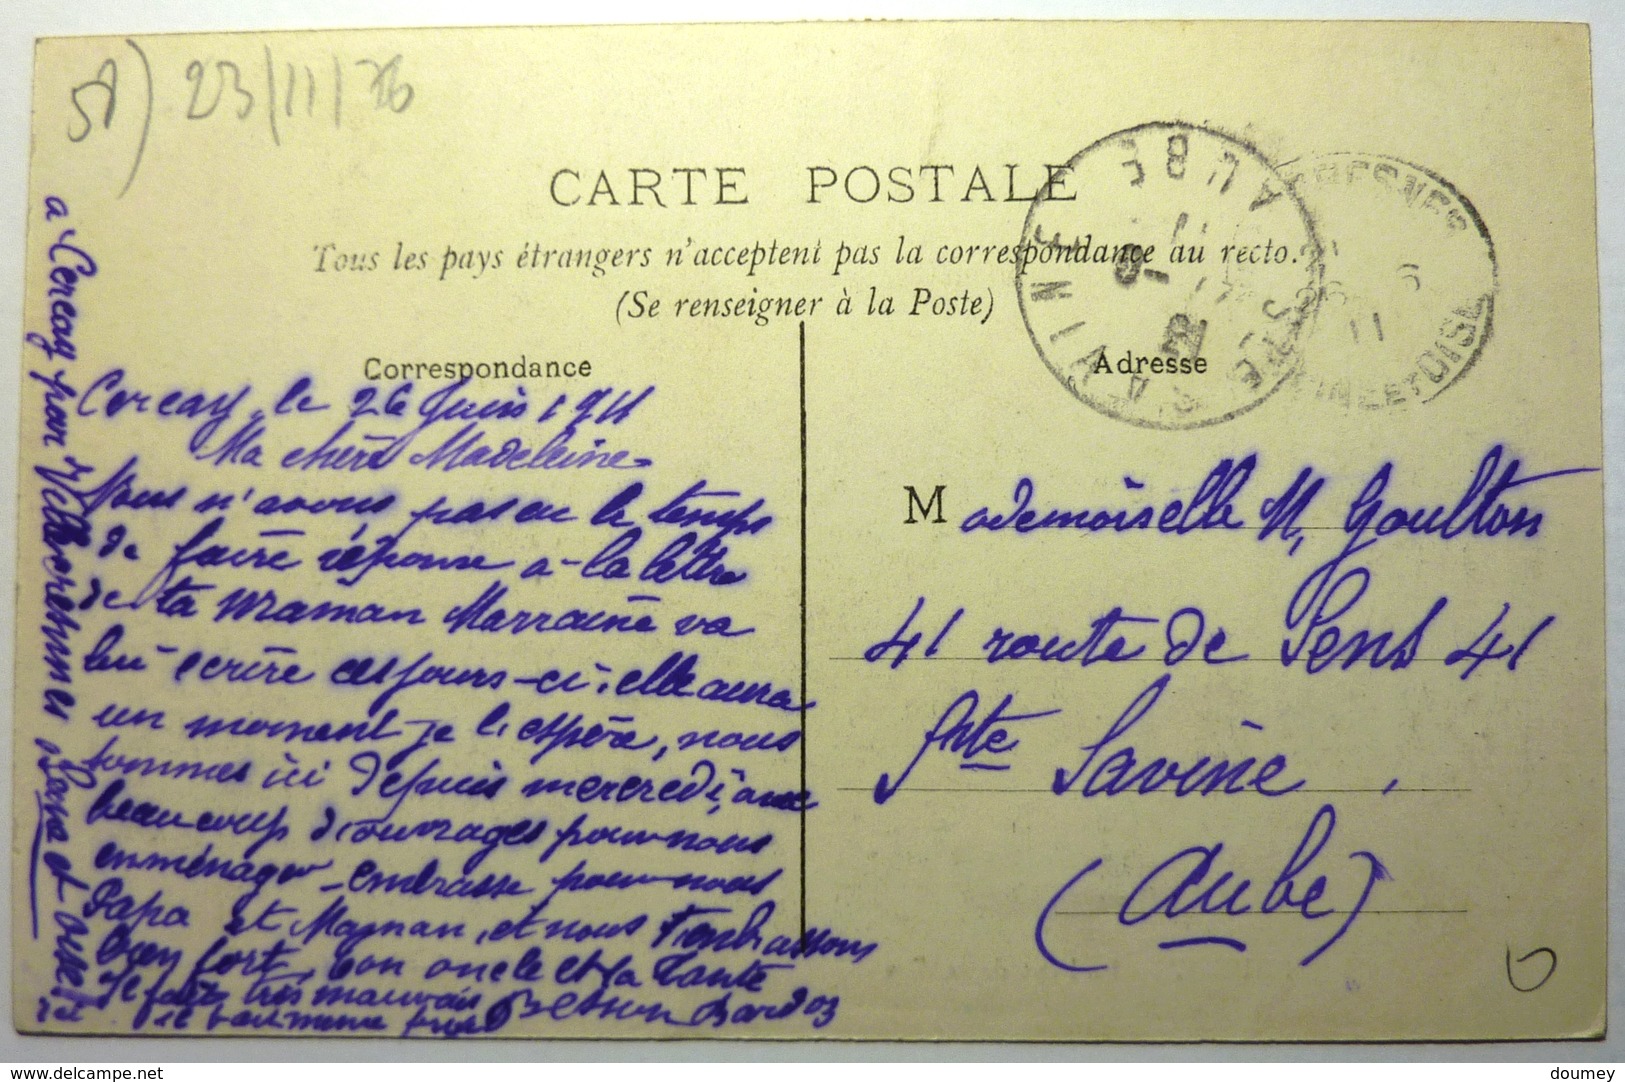 23/11/76
CARTE POSTALE
Tous les pays étrangers n'acceptent pas la correspondance au recto.
(Se renseigner à la Poste)
Correspondance
Adresse
AUBE
STE SAVINE
FRESNES
SEINE ET OISE
26 6
11
Cercay, le 26 Juin 1911
Ma chère Madeleine
Nous n'avons pas eu le temps
de faire réponse a la lettre
de ta maman Marraine va
lui ecrire ces jours-ci, elle aura
un moment je l'espère, nous
sommes ici depuis mercredi, avec
beaucoup d'ouvrages pour nous
emménager - embrasse pour nous
Papa et Maman, et nous t'embrassons
bien fort, ton oncle et ta tante
Il fait très mauvais
Besson
il fait meme froid
a Cercay par Villecresnes Seine et Oise
Mademoiselle M, Goulton
41 route de Sens 41
Ste Savine,
(Aube)
www.delcampe.net
doumey